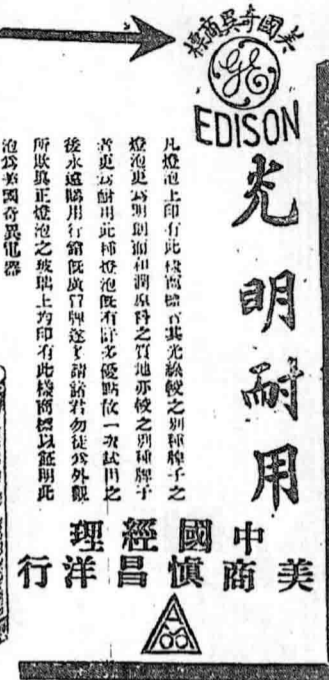 美國奇異商標
GE
EDISON
光明耐用
凡燈泡上印有此樣商標者其光線較之別種牌子之
燈泡更為明而和潤原料之質地亦較之別種牌子
者更為耐用此種燈泡既有許多優點故一次試用之
後永遠購用行銷既廣冒牌遂多請諸君勿徒為外觀
所欺真正燈泡之玻璃上均印有此樣商標以証明此
泡為美國奇異電器
中國經理
美商慎昌洋行